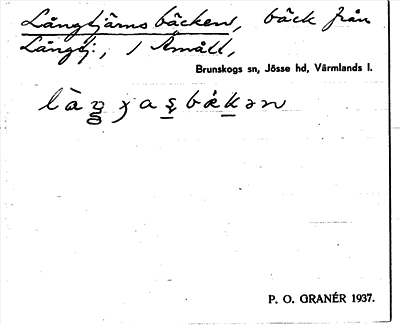 Långtjärnsbäcken, bäck från
Långtj:, i Åmåll,
Brunskogs sn, Jösse hd, Värmlands l.
P. O. GRANÉR 1937.